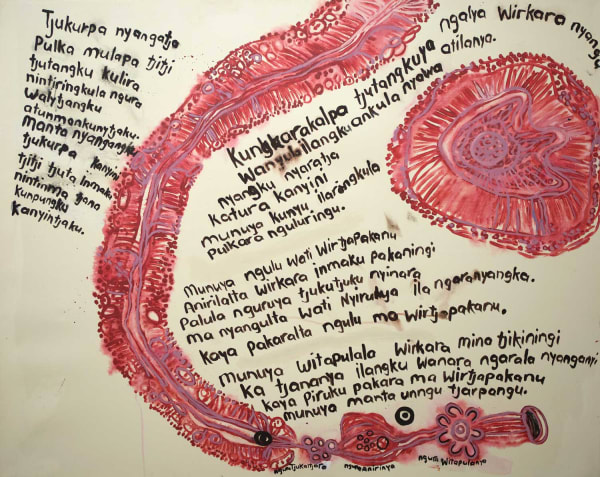 Tjukurpa nyangatja
Pulka mulapa tjitji
tjutangku kulira
nintiringkula ngura
Waltjangku
atunmankunytjaku.
manta nyangangka
tjukurpa kanyini
tjitji tjuta inmaku
nintinma tjana
kunpungku
kanyintjaku.
ngalya Wirkara nyangu
Kungkarakalpa tjutangkuya atilanya.
Wanyubilangku ankula nyawa
nyangku nyaratja
katura kanyini
munuya kunyu ilarangkula
pulkara nguluringu.
Munuya ngulu wati Wirtjapakanu
Anirilatta Wirkara inmaku pakaningi
Palula nguruya tjukutjuku nyinara
ma nyangulta Wati Nyirunya ila ngaranyangka.
Kaya pakaralta ngulu ma Wirtjapakanu.
munuya witapulala Wirkara mina tjikiningi
ka tjananya ilangku wanara ngarala nyanganyi
kaya piruku pakara ma Wirtjapakanu
munuya manta unngu tjarpangu.
ngura Anirinya
ngura Witapulanya